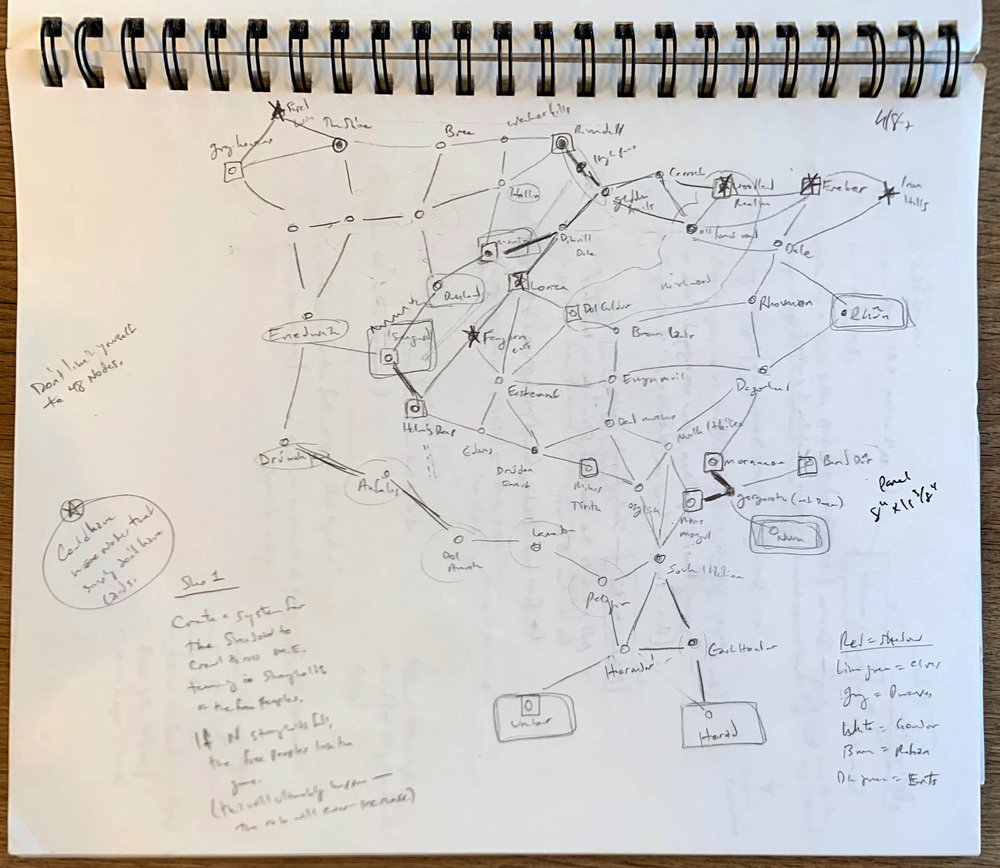 4/8
The Shire
Bree
weatherhills
Rivendell
High pass
grey havens
Hollin
gladden
fields
Carrock
woodland
Realm
Erebor
Iron
Hills
old forest road
Dale
moria
Dimrill
Dale
Dunland
Lorien
Dol Guldur
mirkwood
Rhovanion
Rhûn
Enedwaith
Isengard
Fangorn
ents
Brown Lands
Eastemnet
Emyn muil
Dagorlad
Helm's Deep
Edoras
Druadan
Forest
Dead marshes
North Ithilien
Minas
Tirith
Osgiliath
Minas
morgul
morannon
Barad Dûr
gorgoroth (mt Doom)
Nurn
Anfalas
Dol
Amroth
Pelargir
South Ithilien
Harondor
Umbar
Harad
Don't limit yourself
to 48 nodes.
Could have
more nodes that
simply don't have
cards.
Panel
8" x 11 3/8"
Create a system for
the Shadow to
crawl across M.E.
turning in Strongholds
of the free Peoples.
If N strongholds fall,
the free peoples lose the
game.
(This will ultimately happen —
the rate will ever-increase)
Red = Shadow
Lime green = elves
grey = Dwarves
White = Gondor
Brown = Rohan
Dk green = Ents